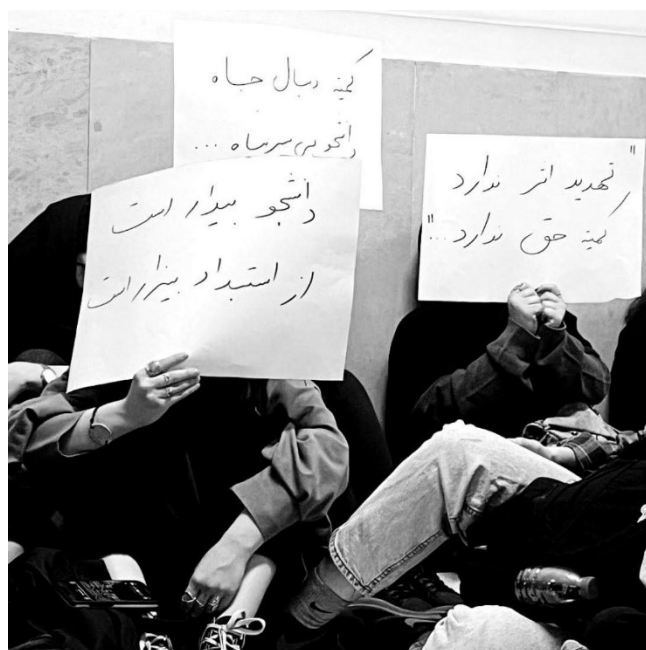 کمیته دنبال جاه
دانشجو بی سرپناه ...
دانشجو بیدار است
از استبداد بیزار است
"تهدید اثر ندارد
کمیته حق ندارد..."